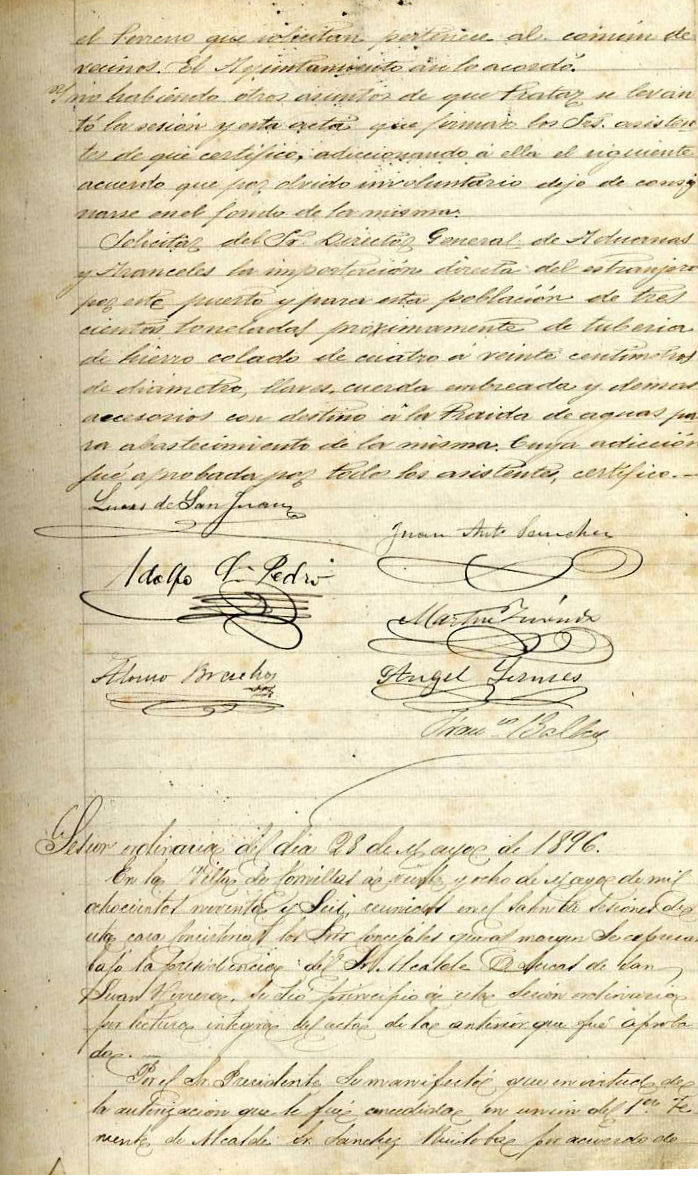 el terreno que solicitan pertenece al comun de
vecinos. El Ayuntamiento asi lo acordó.
Y no habiendo otros asuntos de que tratar se levan
tó la sesión y esta acta que firman los Sres. asisten
tes de que certifico, adicionando á ella el siguiente
acuerdo que por olvido involuntario dejo de consig
narse en el fondo de la misma.
Solicitar del Sr. Director General de Aduanas
y Aranceles la importación directa del extranjero
por este puerto y para esta población de tres
cientas toneladas próximamente de tuberia
de hierro colado de cuatro á veinte centimetros
de diámetro, llaves, cuerda embreada y demas
accesorios con destino á la traida de aguas pa
ra abastecimiento de la misma. Cuya adicción
fué aprobada por todos los asistentes, certifico.-
Lucas de San Juan
Juan Antº Sanchez
Adolfo Pedro
Martin
Alonso
Angel
Francco
Sesion ordinaria del dia 28 de Mayo de 1896.
En la Villa de á veinte y ocho de Mayo de mil
ochocientos noventa y Seis, reunidos en el salon de sesiones de
esta casa consistorial los Sres concejales que al margen se expresan
bajo la presidencia del Sr. Alcalde D. Lucas de San
Juan se dio principio á esta sesion ordinaria
por lectura integra del acta de la anterior que fué aproba
da.-
Por el Sr. Presidente se manifestó que en virtud de
la autorizacion que le fué concedida en union del 1er Te
niente de Alcalde Sr. Sanchez por acuerdo de